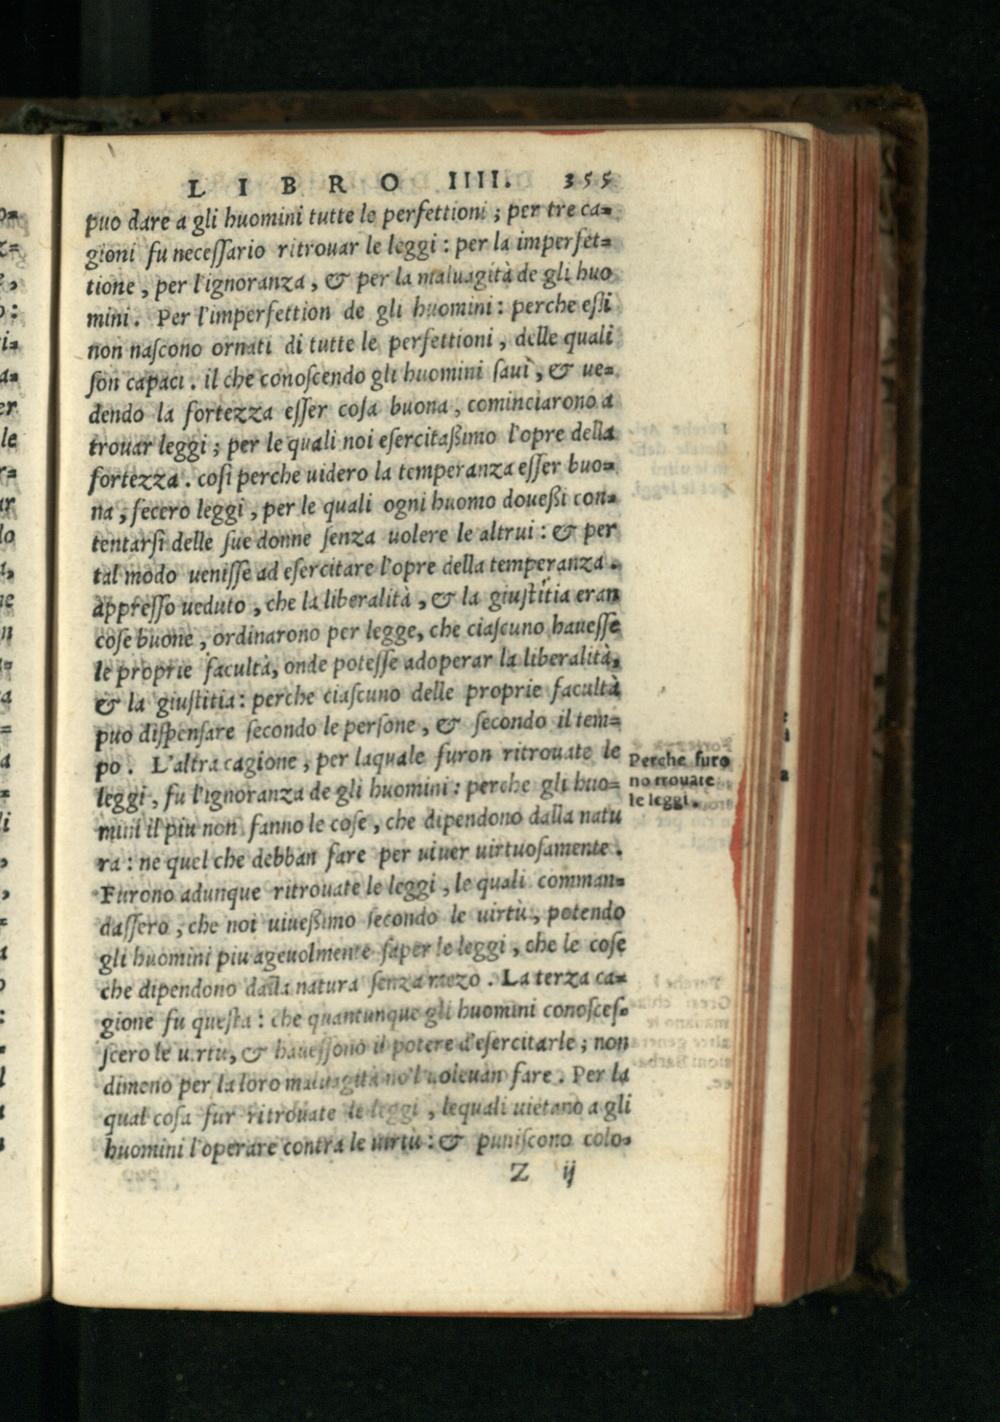 LIBRO IIII. 355
puo dare a gli huomini tutte le perfettioni ; per tre ca=
gioni fu neceſſario ritrouar le leggi : per la imperfet=
tione , per l'ignoranza , & per la maluagità de gli huo
mini. Per l'imperfettion de gli huomini : perche eſſi
non naſcono ornati di tutte le perfettioni , delle quali
ſon capaci . il che conoſcendo gli huomini ſauì , & ue=
dendo la fortezza eſſer coſa buona , cominciarono a
trouar leggi ; per le quali noi eſercitaßimo l'opre della
fortezza . coſi perche uidero la temperanza eſſer buo=
na , fecero leggi , per le quali ogni huomo doueßi con=
tentarſi delle ſue donne ſenza uolere le altrui : & per
tal modo ueniſſe ad eſercitare l'opre della temperanza .
appreſſo ueduto , che la liberalità , & la giuſtitia eran
coſe buone , ordinarono per legge, che ciaſcuno haueſſe
le proprie facultà, onde poteſſe adoperar la liberalità,
& la giuſtitia : perche ciaſcuno delle proprie facultà
puo diſpenſare ſecondo le perſone , & ſecondo il tem=
po . L'altra cagione , per laquale furon ritrouate le
leggi , fu l'ignoranza de gli huomini : perche gli huo=
mini il piu non ſanno le coſe , che dipendono dalla natu
ra : ne quel che debban fare per uiuer uirtuoſamente .
Furono adunque ritrouate le leggi , le quali comman=
daſſero , che noi uiueßimo ſecondo le uirtù , potendo
gli huomini piu ageuolmente ſaper le leggi , che le coſe
che dipendono dalla natura ſenza mezo . La terza ca=
gione fu queſta : che quantunque gli huomini conoſceſ=
ſcero le uirtù, & haueſſono il potere d'eſercitarle ; non
dimeno per la loro maluagità no'l uoleuan fare . Per la
qual coſa fur ritrouate le leggi , lequali uietano a gli
huomini l'operare contra le uirtù : & puniſcono colo=
Z ij
Perche furo
no trouate
le leggi .